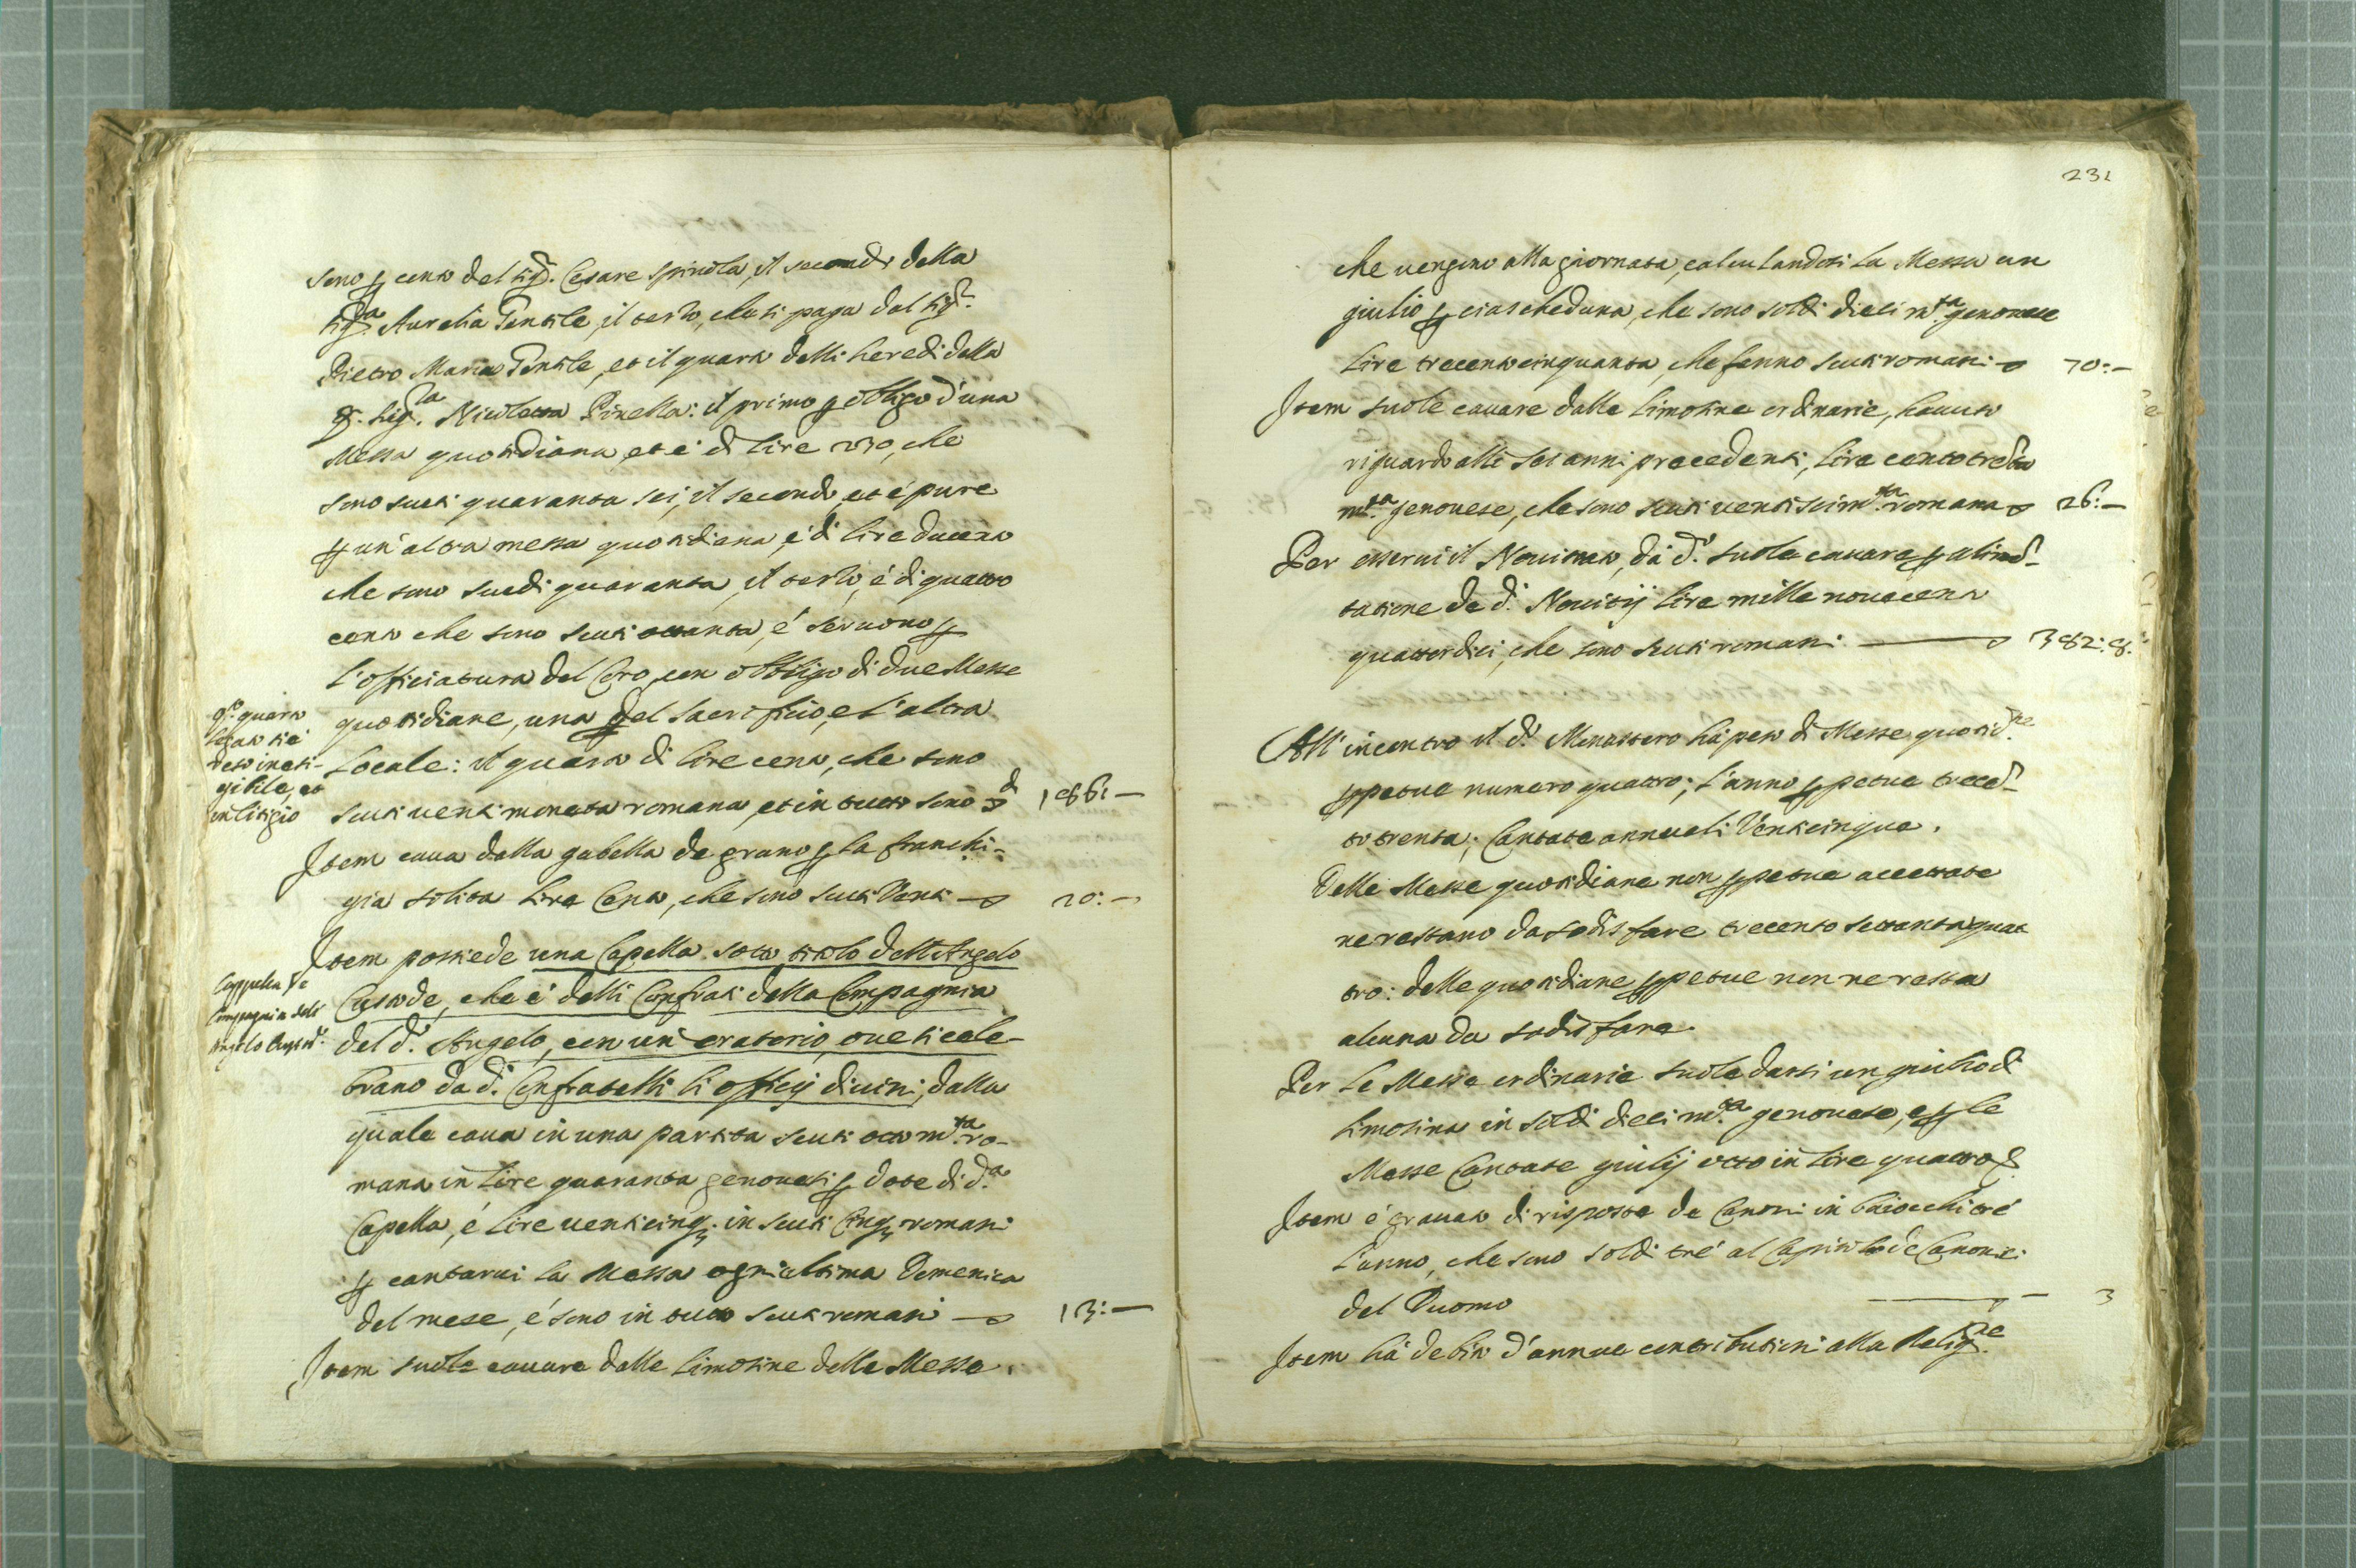 sono p cento del sigr. Cesare Spinola, il secondo della
sigra Aurelia Gentile, il terzo, che si paga dal sigr.
Pietro Maria Gentile, et il quarto delli heredi della
q. sigra. Nicoletta Pinella: il primo p obligo d'una
Messa quotidiana, et è di lire 230, che
sono scuti quaranta sei, il secondo, et è pure
p un'altra messa quotidiana, è di lire ducento
che sono scudi quaranta, il terzo, è di quatro
cento che sono scuti ottanta, é servono p
l'officiatura del Coro, con obligo di due Messe
quotidiane, una del sacrificio, e l'altra
Locale: il quarto di lire cento, che sono
scuti venti moneta romana, et in tutto sono 186: —
qto. quarto
legato si è
reso inesi-
gibile, et
in litigio
Item cava dalla gabella de grano p la franchi-
gia solita lire Cento, che sono scuti Venti — 20: —
Item possede una Capella sotto titolo dell'Angelo
Custode, che è delli Confrati della Compagnia
del d. Angelo, con un oratorio, ove si cele-
brano da d. Confratelli li officij divini, dalla
Cappella, e
Compagnia dell
Angelo Custode.
quale cava in una partita scuti otto mta. ro-
mana in lire quaranta genovesi p dote di da.
Capella, é lire venticinq. in scuti Cinq. romani
p cantarvi la Messa ogni ultima Domenica
del mese, é sono in tutto scuti romani — 13: —
Item suole cavare dalle limosine delle Messe
231
che vengono alla giornata, calculandosi la Messa un
giulio p ciascheduna, che sono soldi dieci mta. genovese
lire trecento cinquanta, che fanno scuti romani — 70: —
Item suole cavare dalle limosine ordinarie, havuto
riguardo alli sei anni precedenti, lire cento trenta
mta. genovese, che sono scuti venti sei mta. romana 26: —
Per esservi il Novitiato, da d. suole cavare p alimen-
tatione de d. Novitij lire mille novecento
quattordici, che sono scuti romani — 382: 8.
All'incontro il d. Monastero hà peso di Messe quotidne.
ppetue numero quattro; l'anno ppetue trecen-
to trenta; Cantate annuali Venticinque.
Delle Messe quotidiane non ppetue accettate
ne restano da sodisfare trecento settanta quat
tro: delle quotidiane ppetue non ne resta
alcuna da sodisfare.
Per le Messe ordinarie suole darsi un giulio di
limosina in soldi dieci mta. genovese, e p le
Messe Cantate giulij otto in lire quattro
Item é gravato di risposta de Canoni in baiocchi tré
l'anno, che sono soldi tré al Capitolo de Canonici
del Duomo — 3
Item hà debito d'annue contributioni alla Religne.